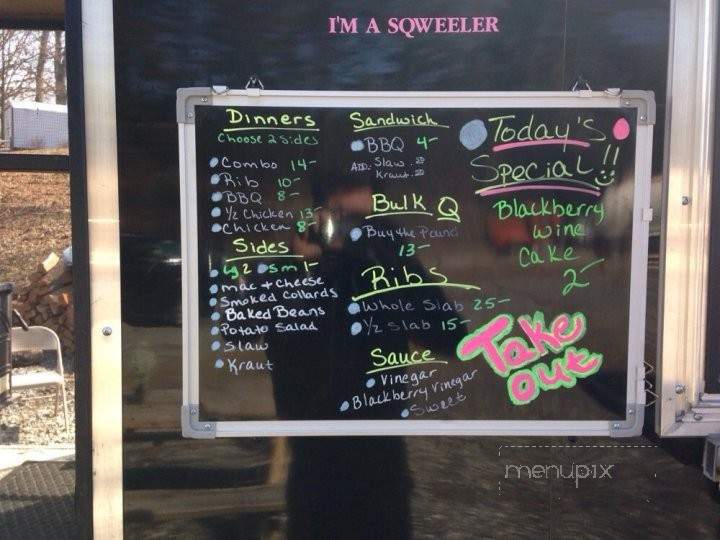 I'M A SQWEELER
Dinners
Choose 2 sides
Combo 14-
Rib 10-
BBQ 8-
1/2 Chicken 13
Chicken 8-
Sides
Lg 2 sm 1-
mac + cheese
Smoked Collards
Baked Beans
Potato Salad
Slaw
Kraut
Sandwich
BBQ 4-
ADD. Slaw
Kraut
Bulk Q
Buy the Pound
13-
Ribs
Whole Slab 25-
1/2 Slab 15-
Sauce
Vinegar
Blackberry Vinegar
Sweet
Today's
Special!!
Blackberry
wine
Cake
2-
Take
out
menupix